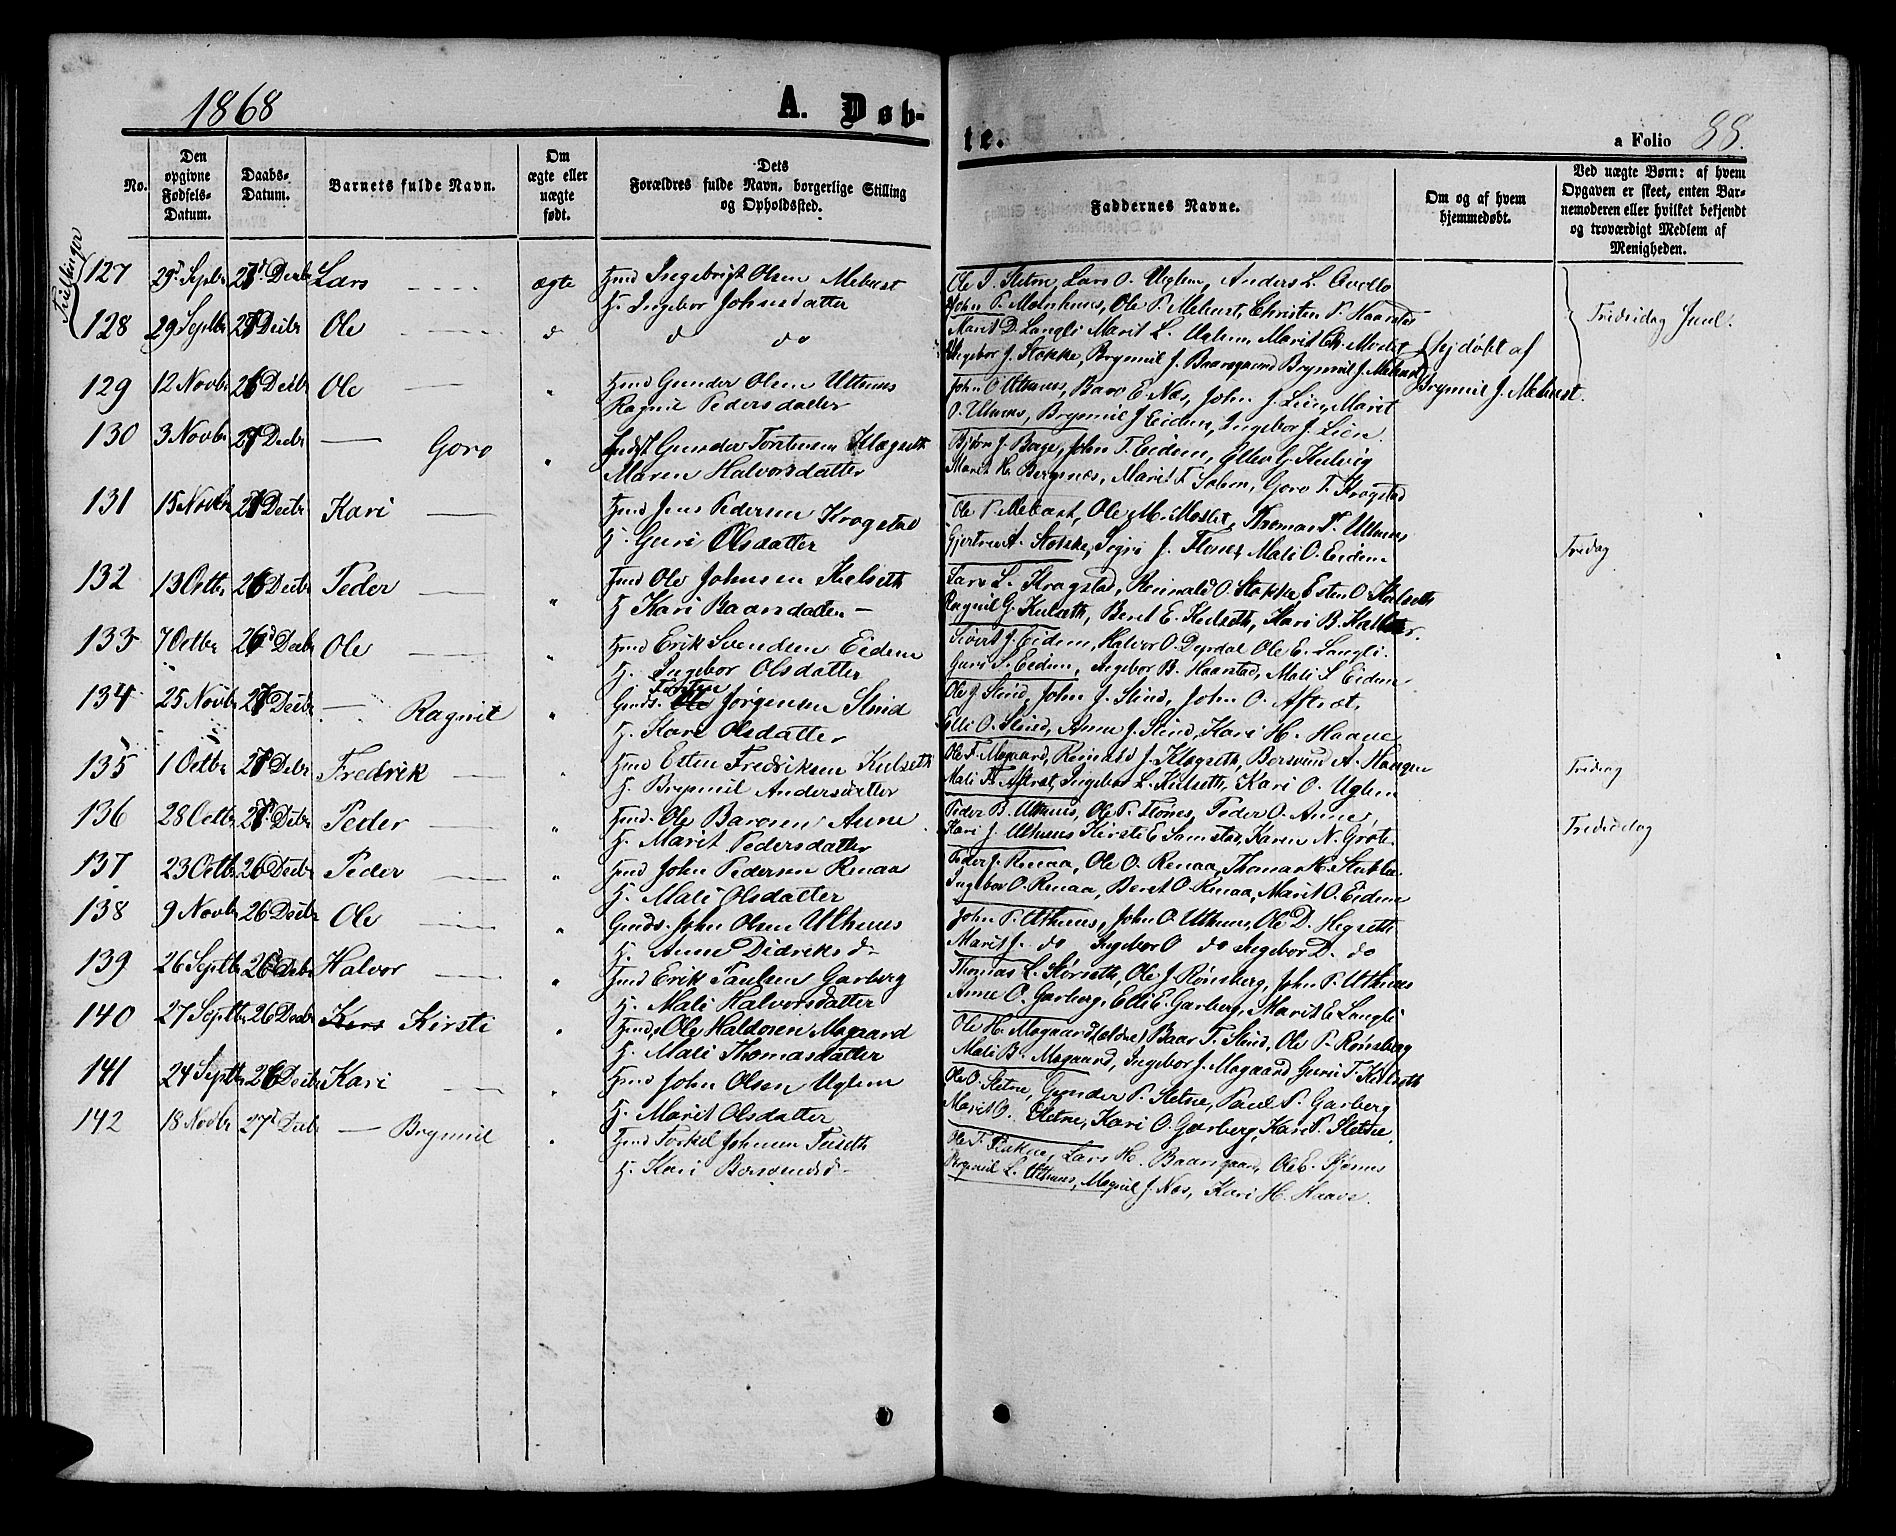 1868
A. Døb-
te.
a Folio 88.
No.
Den opgivne Fødsels-Datum.
Daabs-Datum.
Barnets fulde Navn.
Om ægte eller uægte født.
Dets Forældres fulde Navn, borgerlige Stilling og Opholdssted.
Faddernes Navne.
Om og af hvem hjemmedøbt.
Ved uægte Børn: af hvem Opgaven er skeet, enten Barnemoderen eller hvilket bekjendt og troværdigt Medlem af Menigheden.
Tvillinger
127 29de Septbr 27de Decbr Lars ægte Hmd Ingebrigt Olsen Mebust
H. Ingebor Johnsdatter
Ole J. Sletne, Lars O. Uglem, Anders L.
John P. Molnhuus, Ole P. Mebust, Christen P. Haarstad
128 29 Septbr 27 Decbr Ole d d do
Marit D. Langli Marit L. Uglem, Marit Moslet
Ingebor J. Stokke, Brynnil J. Baarsgaard Brynnil J. Mebust
Hjdøbt af
Brynnil J. Mebust.
Tredidag Juul.
129 12 Novbr 26 Decbr Ole " Hmd Gunder Olsen Uthuus
Ragnil Pedersdatter
John O Uthuus, Baro E. Næs, John J. Lien, Marit
O. Uthuus, Brynnil J Eidem, Ingebor J. Lien.
130 3 Novbr 27 Decbr Goro " Gunder Torstensen Klogseth
Maren Halvorsdatter
Bjørn J. Bage, John T. Eidem, Ellev G. Kulvig
Marit H. Bergnæs, Marit F. Solem, Goro T. Krogstad
131 15 Novbr 27 Decbr Kari Hmd Jens Pedersen Krogstad
H. Guri Olsdatter
Ole P. Mebust, Ole M. Moslet, Thomas T. Uthuus
Gjertru A. Stokke, Sigri J. Flones Mali O. Eidem
Tredag
132 13 Octbr 26 Decbr Peder " Hmd Ole Johnsen Kulseth
H. Kari Baarsdatter
Lars L. Krogstad, Reinald O. Stokke Esten O. Kulseth
Ragnil G. Kulseth, Beret E. Kulseth, Kari B.
133 7 Octbr 26 Decbr Ole " Hmd Erik Svendsen Eidem
H. Ingebor Olsdatter
Sivert J. Eidem, Halvor O. Dyrdal Ole E. Langli.
Guru S. Eidem, Ingebor B. Haarstad, Mali S. Eidem
134 25 Novbr 27 Decbr Ragnil " Gmds. Torsten Jørgensen Slind
H. Kari Olsdatter
Ole J. Slind, John J. Slind, John O. Aftret,
Elli O. Slind, Anne J. Slind, Kari H. Haave
135 1 Octbr 27 Decbr Fredrik " Hmd Esten Fredriksen Kulseth
H. Brynnil Andersdatter
Ole F. Mogaard, Reinald J. Klogseth, Borsvend A. Haugen
Mali Aftret, Ingebor L. Kulseth, Kari O. Uglem
Tredag
136 28 Octbr 27 Decbr Peder " Hmd. Ole Barosen Aune
H. Marit Pedersdatter
Peder B. Uthuus, Ole P. Flones, Peder O. Aune,
Kari J. Uthuus Kirsti E Samstad, Karen N. Grøte
Tredidag
137 23 Octbr 26 Decbr Peder " Hmd John Pedersen Renaa
H. Mali Olsdatter
Peder J. Renaa, Ole O. Renaa, Thomas
Ingebor O. Renaa, Beret O. Renaa, Marit O. Eidem
138 9 Novbr 26 Decbr Ole " Gmds. John Olsen Uthuus
H. Anne Didriksd.
John P. Uthuus, John O. Uthuus, Ole D. Hegseth
Marit J. do Ingebor O do Ingebor D. do
139 26 Septbr 26 Decbr Halvor " Hmd Erik Paulsen Garberg
H. Mali Halvorsdatter
Thomas L. Størseth, Ole J. Rønsberg, John P. Uthuus
Anne O. Garberg, Elli E. Garberg, Marit E Langli
140 27 Septbr 26 Decbr Kirsti " Hmd. Ole Haldosen Mogaard
H. Mali Thomasdatter
Ole H. Mogaard (ældre) Baar T. Slind, Ole P. Rønsberg
Mali B. Mogaard, Ingebor J. Mogaard Guru T. Kulseth
141 24 Septbr 26 Decbr Kari " Hmd John Olsen Uglem
H. Marit Olsdatter
Ole O. Sletne, Gunder P. Sletne, Paul P. Garberg
Marit O. Sletne, Kari O. Garberg, Kari P. Sletne
142 18 Novbr 27de Decbr Brynnil " Hmd Torkel Johnsen Teiseth
H. Kari Borsvendsd.
Ole T. Flakne, Lars H. Baarsgaard, Ole E. Fjøsnes
Brynnil L. Uthuus, Magnil J. Næs, Kari H. Haave.